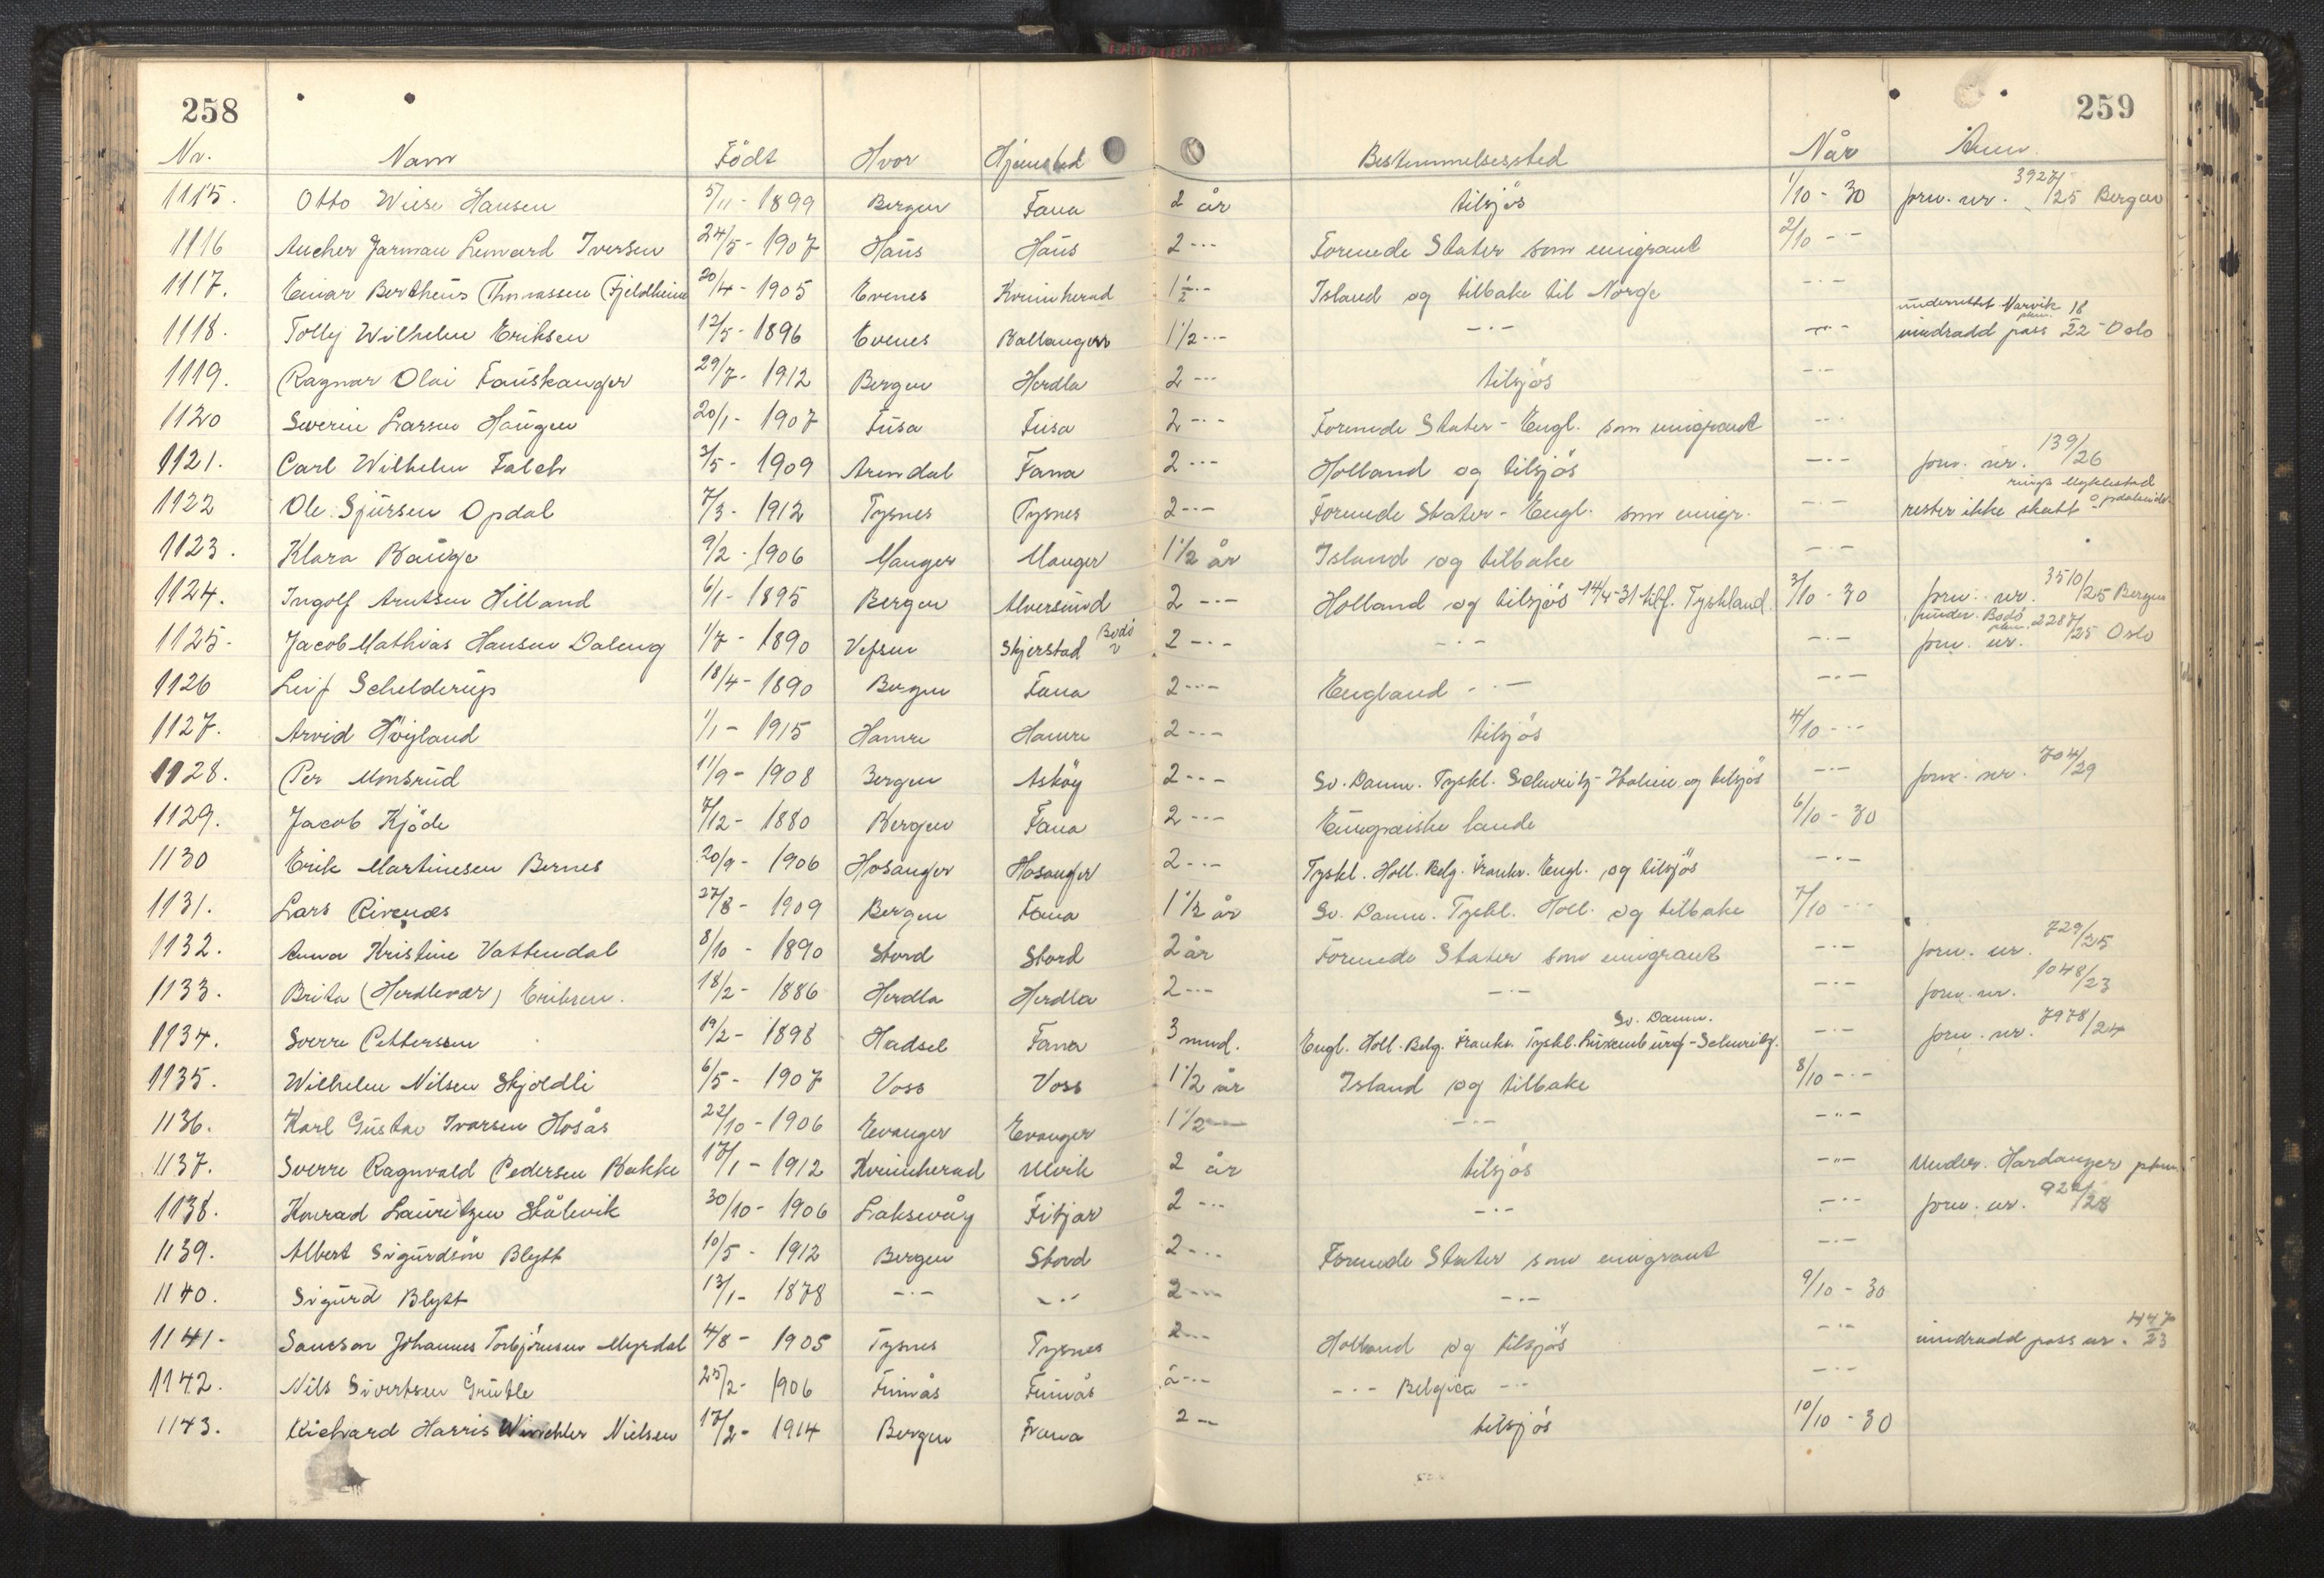 258
259
Nr. Navn Födt Hvor Hjemsted Bestemmelsessted Når Anm.
1115. Otto Wiese Hansen 5/11 - 1899 Bergen Fana 2 år tilsjös 1/10 - 30 forn. nr. 3927/25 Bergen
1116 Ancher Jarman Leonard Iversen 24/5 - 1907 Haus Haus 2 -"- Forenede Stater som emigrant 2/10 - -
1117. Einar Bertheus Thomassen (Fjeldheim 20/4 - 1905 Evenes Kvinnherad 1 1/2 -"- Island og tilbake til Norge -"-
underrettet Narvik pkm. 18
1118. Tolly Wilhelm Eriksen 12/5 - 1896 Evenes Ballangen 1 1/2 -"- -"- -"- inndradd pass 22 - Oslo
1119. Ragnar Olai Fauskanger 29/7 - 1912 Bergen Herdla 2 -"- tilsjös -"-
1120 Severin Larsen Haugen 20/1 - 1907 Fusa Fusa 2 -"- Forenede Stater - Engl. som emigrant -"-
1121. Carl Wilhelm Falch 3/5 - 1909 Arendal Fana 2 -"- Holland og tilsjös -"- forn. nr. 139/26
1122 Ole Sjursen Opdal 7/3 - 1912 Tysnes Tysnes 2 -"- Forenede Stater - Engl. som emigr. -"- rester ikke skatt
1123. Klara Bauge 9/2 - 1906 Manger Manger 1 1/2 år Island og tilbake -"-
1124. Ingolf Arntsen Hilland 6/1 - 1895 Bergen Alversund 2 -"- Holland og tilsjös 14/4-31 tilf. Tyskland 3/10 - 30 forn. nr. 3510/25 Bergen
under. Bodö pkm.
1125. Jacob Mathias Hansen Daleng 1/7 - 1890 Vefsen Skjerstad Bodö 2 -"- -"- -"- forn. nr. 2287/25 Oslo
1126 Leif Schelderup 18/4 - 1890 Bergen Fana 2 -"- England -"- -"-
1127. Arvid Höyland 1/1 - 1915 Hamre Hamre 2 -"- tilsjös 4/10 -"-
1128. Per Monsrud 11/9 - 1908 Bergen Asköy 2 -"- Sv. Danm. Tyskl. Schweitz - Italien og tilsjös -"- forn. nr. 704/29
1129. Jacob Kjöde 7/12 - 1880 Bergen Fana 2 -"- Europæiske lande 6/10 - 30
1130 Erik Martinesen Bernes 20/9 - 1906 Hosanger Hosanger 2 -"- Tyskl. Holl. Belg. Frankr. Engl. og tilsjös -"-
1131. Lars Rivenæs 27/8 - 1909 Bergen Fana 1 1/2 år Sv. Danm. Tyskl. Holl. og tilbake 7/10 -"-
1132. Anna Kristine Vattendal 8/10 - 1890 Stord Stord 2 år Forenede Stater som emigrant -"- forn. nr. 729/25
1133. Brita (Herdlevær) Eriksen. 18/2 - 1886 Herdla Herdla 2 -"- -"- -"- forn. nr. 1048/23
Sv. Danm.
1134. Sverre Pettersen 19/2 - 1898 Hadsel Fana 3 mnd. Engl. Holl. Belg. Frankr. Tyskl. Luxemburg - Schweitz. -"- forn. nr. 7978/24
1135. Wilhelm Nilsen Skjoldli 6/5 - 1907 Voss Voss 1 1/2 år Island og tilbake 8/10 -"-
1136. Karl Gustav Ivarsen Hosås 22/10 - 1906 Evanger Evanger 1 1/2 -"- -"- -"-
1137. Sverre Ragnvald Pedersen Bakke 17/1 - 1912 Kvinnherad Ulvik 2 år tilsjös -"- Under. Hardanger pkm.
1138. Konrad Lauritzen Stålevik 30/10 - 1906 Laksevåg Fitjar 2 -"- -"- -"- forn. nr. 922/28
1139. Albert Sigurdsön Blytt 10/5 - 1912 Bergen Stord 2 -"- Forenede Stater som emigrant -"-
1140. Sigurd Blytt 13/1 - 1878 -"- -"- 2 -"- -"- 9/10 - 30
1141. Samson Johannes Torbjörnsen Myrdal 4/8 - 1905 Tysnes Tysnes 2 -"- Holland og tilsjös -"- inndradd pass nr. 447/23
1142. Nils Sivertsen Grutle 25/2 - 1906 Finnås Finnås 2 -"- -"- Belgia -"- -"-
1143. Richard Harris Winchler Nielsen 17/2 - 1914 Bergen Fana 2 - tilsjös 10/10 - 30